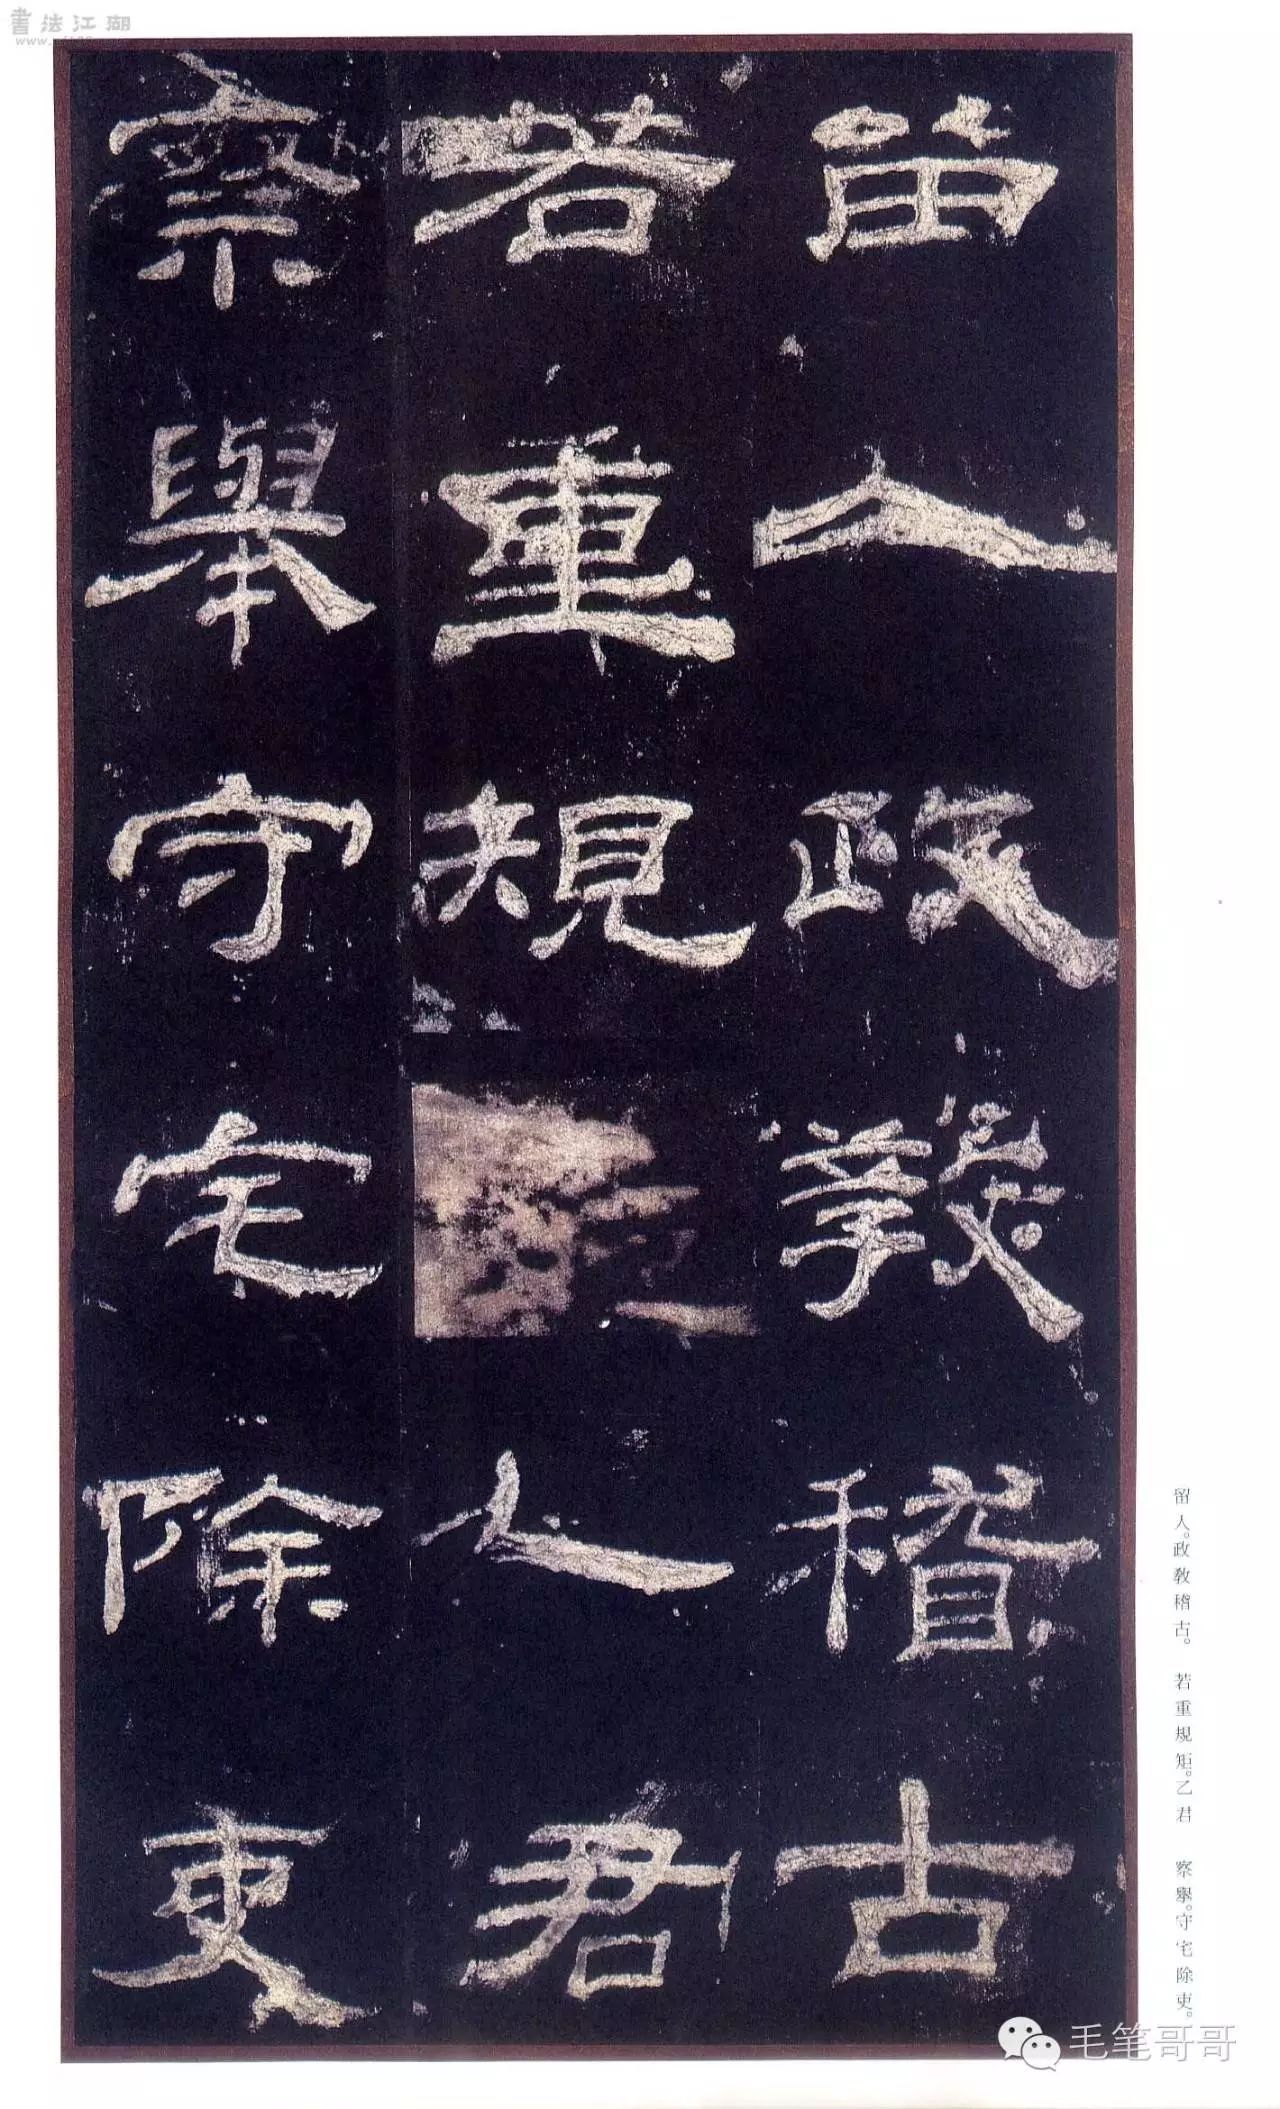 畱人政敎稽古
若重規矩乙君
察舉守宅除吏
留人。政教稽古。 若重規矩。乙君 察舉。守宅除吏。
書法江湖
毛笔哥哥